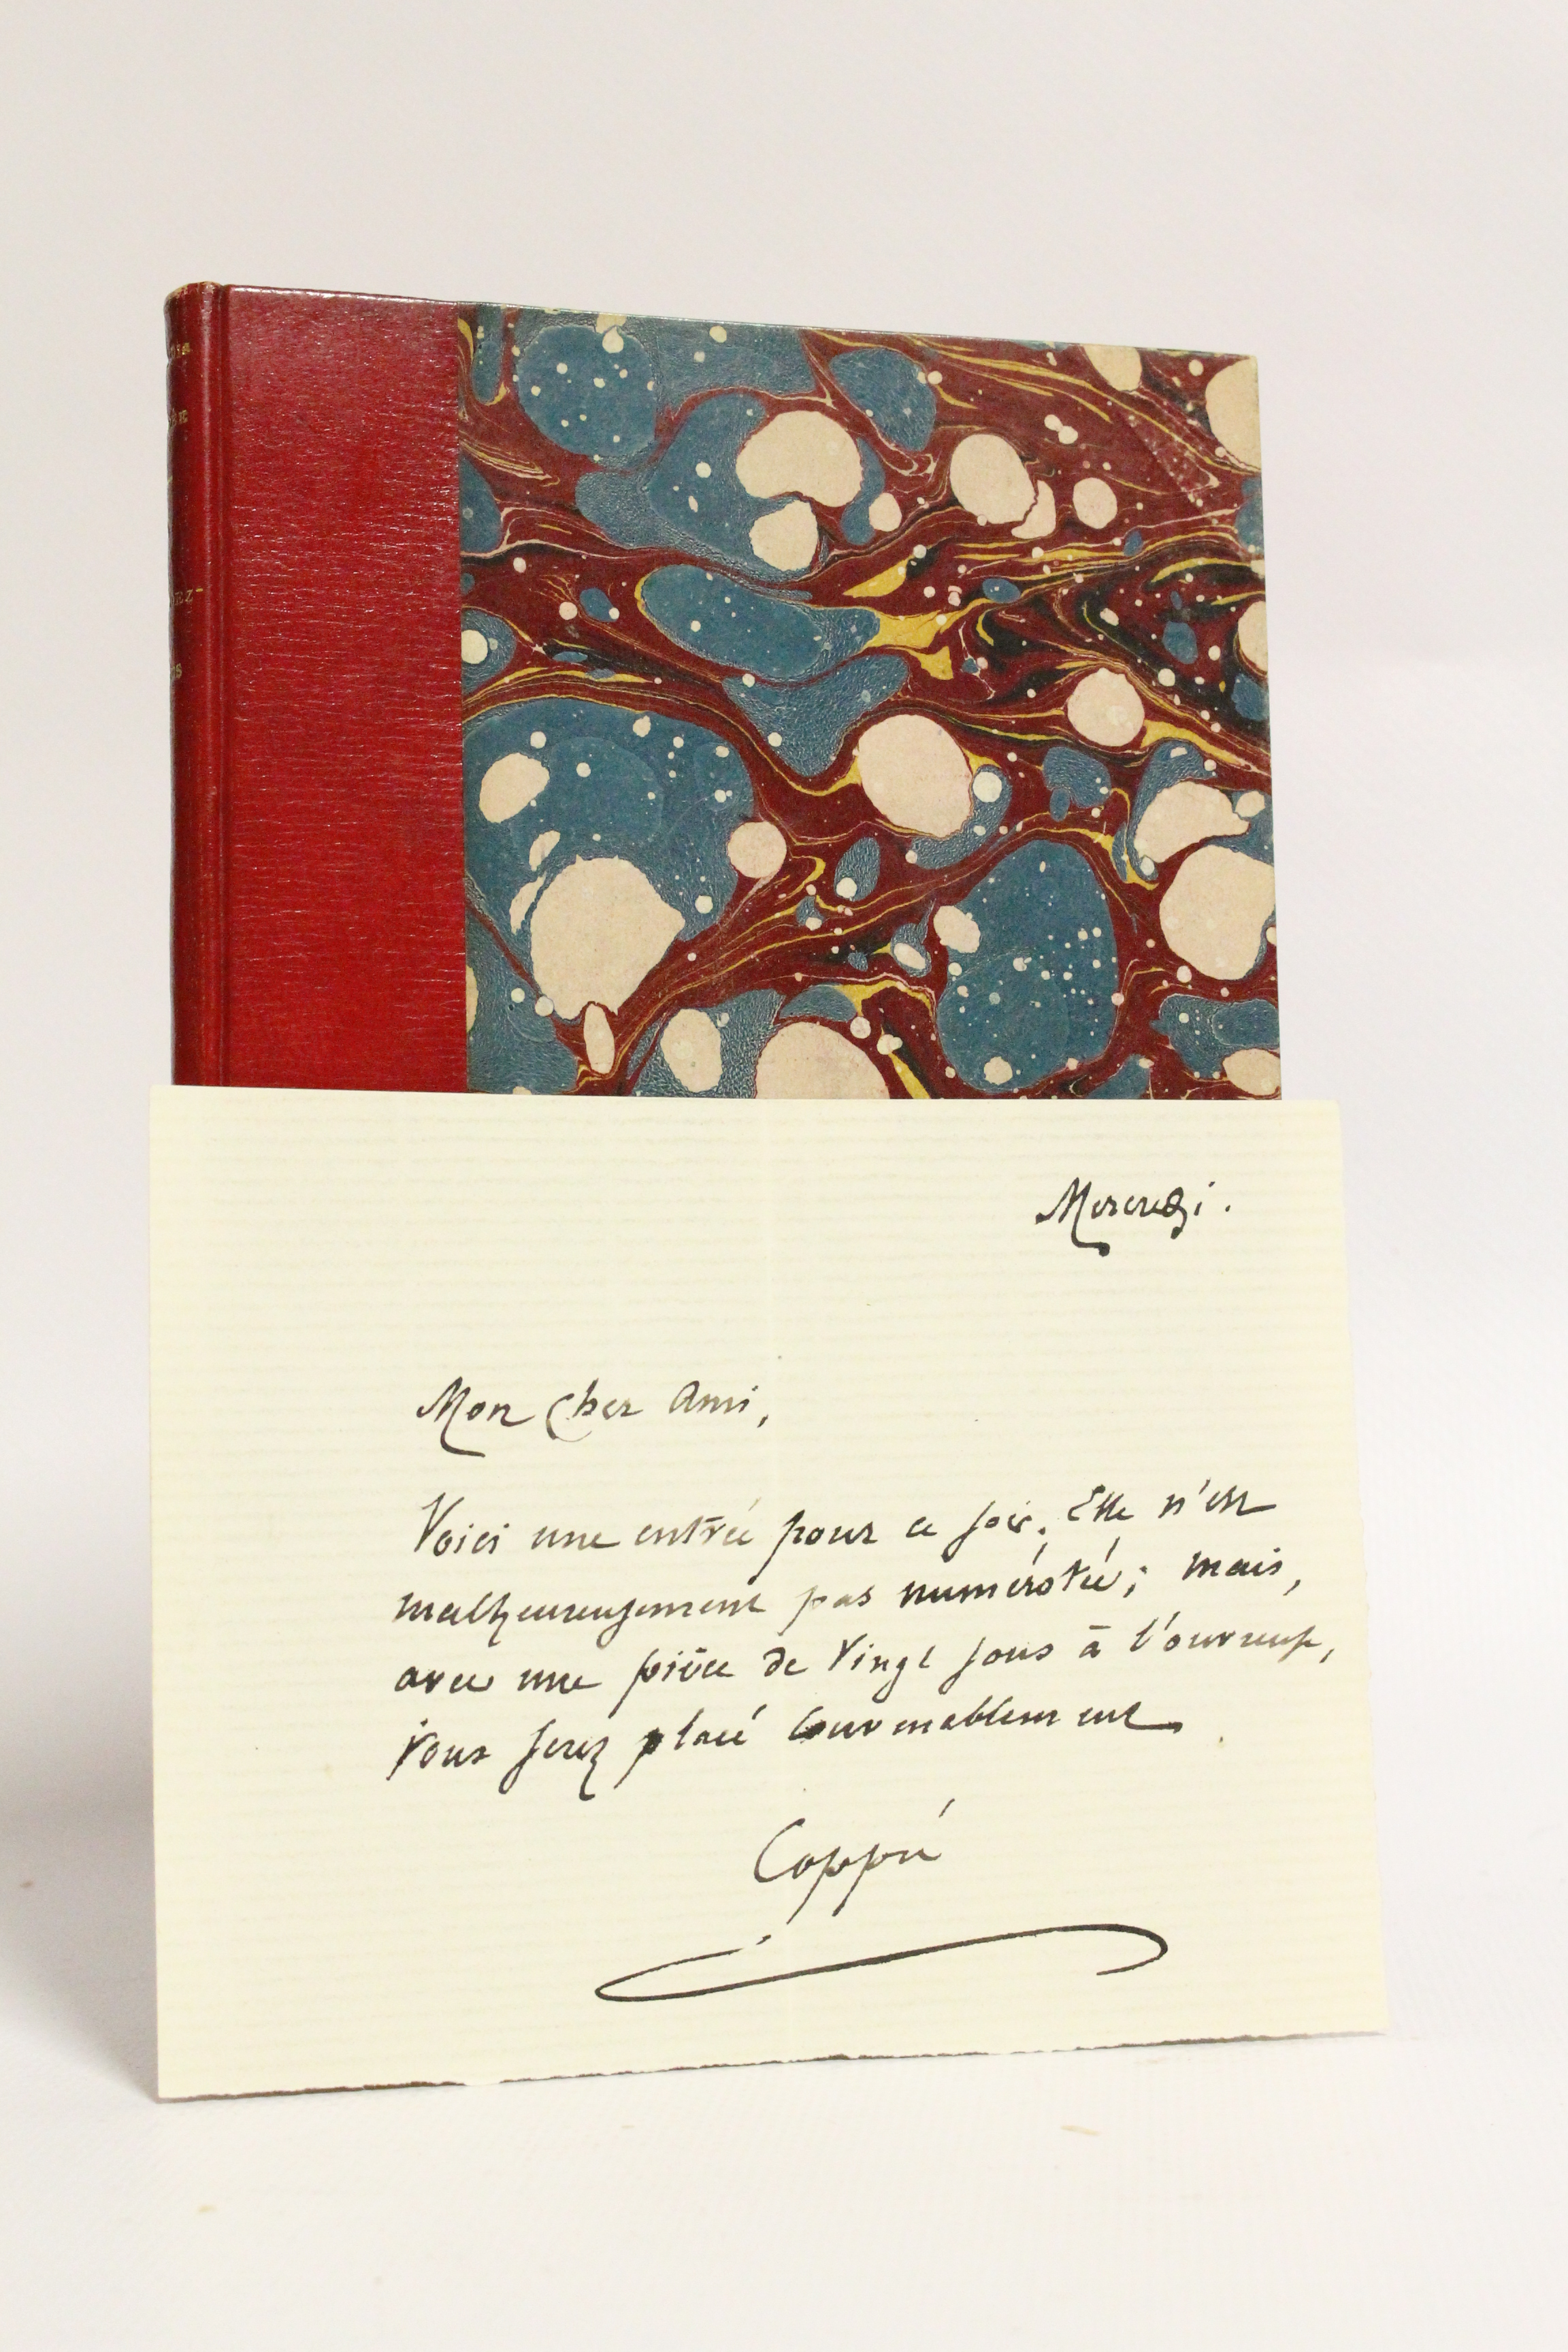 Mercredi.
Mon cher Ami,
Voici une entrée pour ce soir. Elle n'est
malheureusement pas numérotée; mais,
avec une pièce de vingt sous à l'ouvreuse,
vous serez placé convenablement.
Coppée